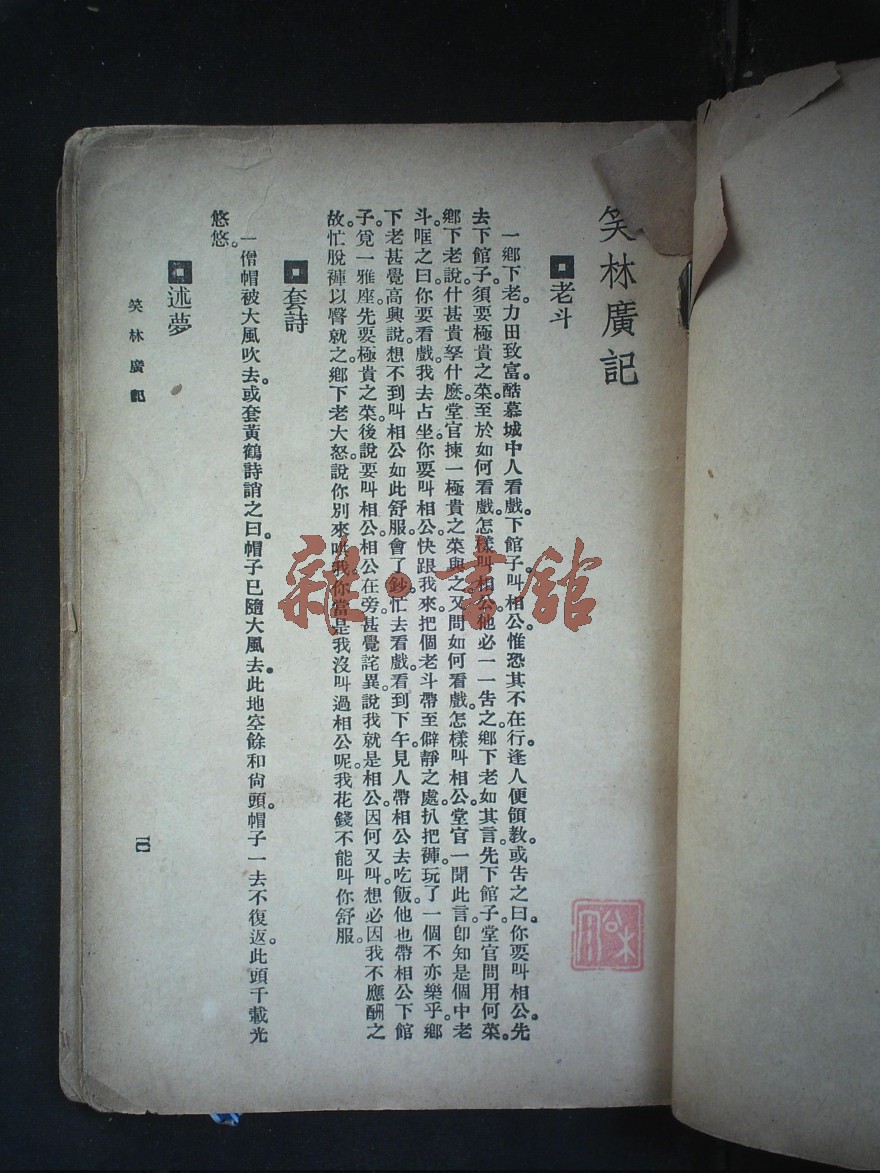 笑林廣記
老斗
一鄉下老。力田致富。酷慕城中人看戲。下館子。叫相公。惟恐其不在行。逢人便領教。或告之曰。你要叫相公。先
去下館子。須要極貴之菜。至於如何看戲。怎樣叫相公。他必一一告之。鄉下老如其言。先下館子。堂官問用何菜。
鄉下老說。什甚貴拏什麽。堂官揀一極貴之菜與之。又問如何看戲。怎樣叫相公。堂官一聞此言。卽知是個中老
斗。哐之曰。你要看戲。我去占坐。你要叫相公。快跟我來。把個老斗帶至僻靜之處。扒把褲玩了一個不亦樂乎。鄉
下老甚覺高興。說。想不到叫相公如此舒服。會了鈔。忙去看戲。看到下午。見人帶相公去吃飯。他也帶相公下館
子。覓一雅座。先要極貴之菜。後說要叫相公。相公在旁。甚覺詫異。說我就是相公。因何又叫。想必因我不應酬之
故。忙脫褲以臀就之。鄉下老大怒說。你別來哄我。你當是我沒叫過相公呢。我花錢不能叫你舒服。
套詩
一僧帽被大風吹去。或套黃鶴詩誚之曰。帽子已隨大風去。此地空餘和尙頭。帽子一去不復返。此頭千載光
悠悠。
述夢
笑林廣記
雜·書館